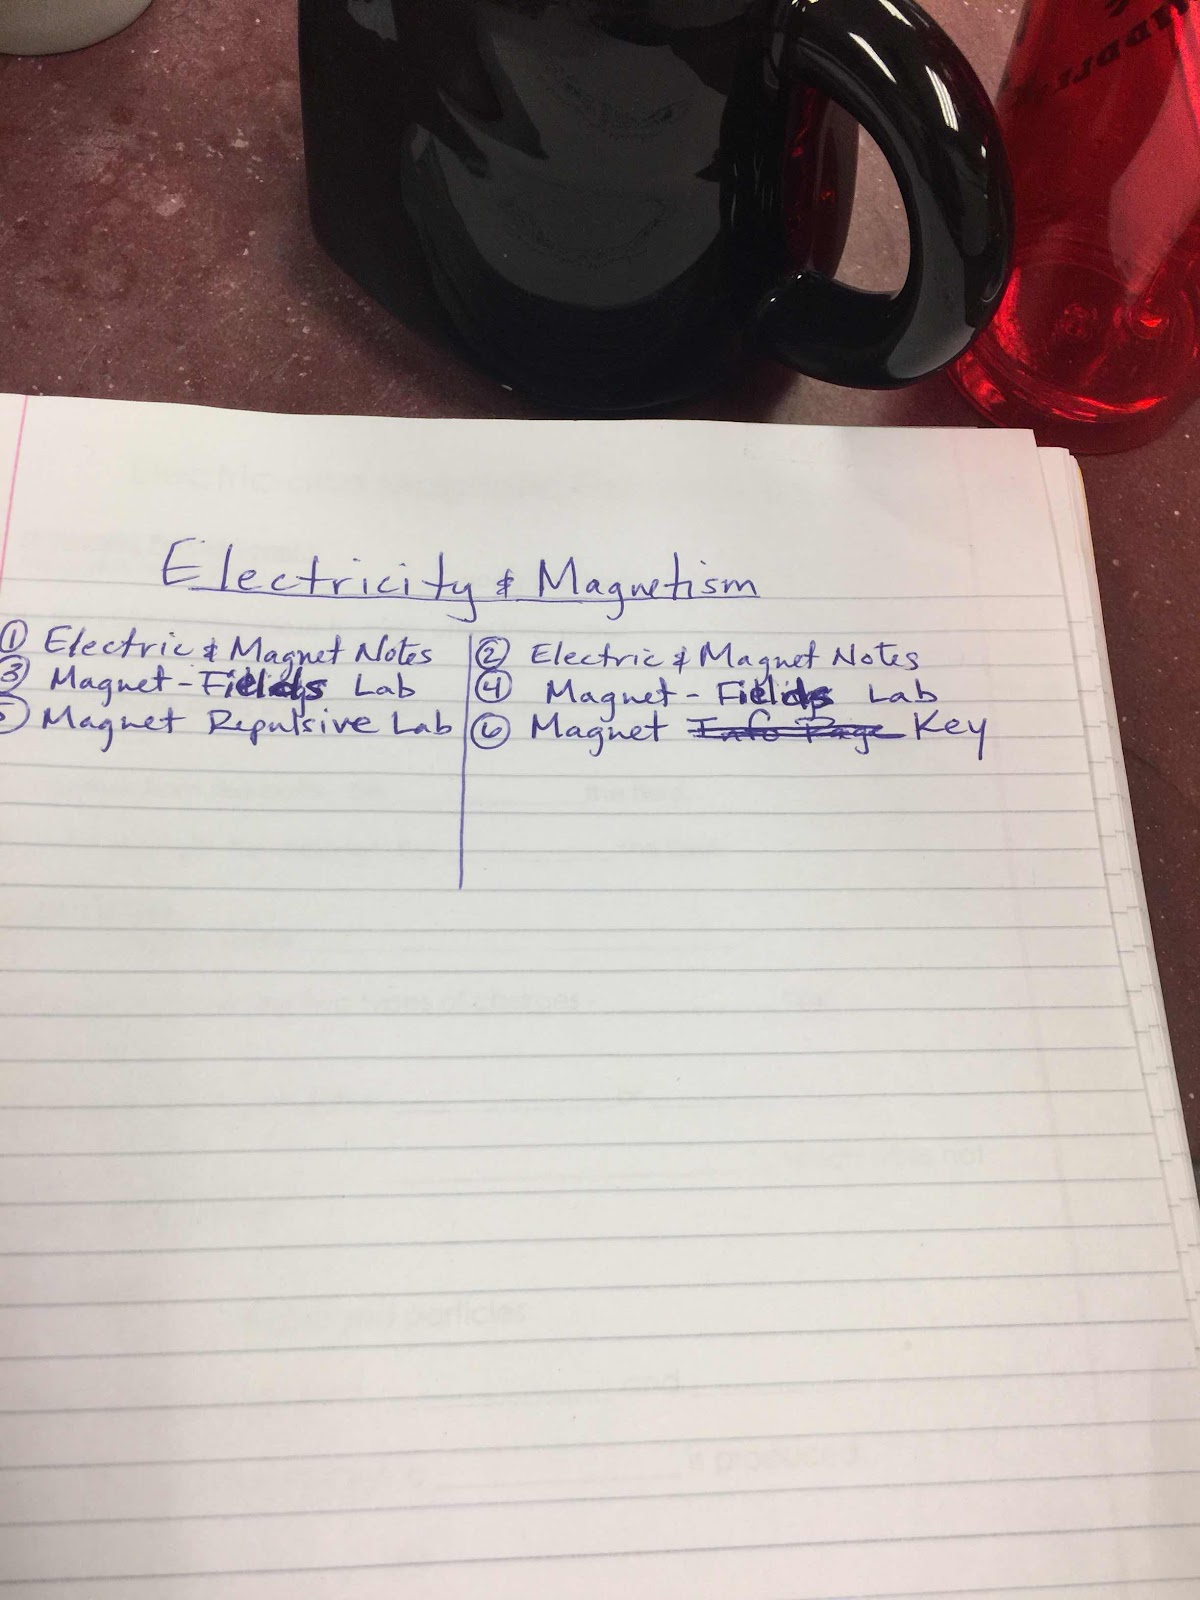 Electricity & Magnetism
① Electric & Magnet Notes
② Electric & Magnet Notes
③ Magnet - Fields Lab
④ Magnet - Fields Lab
5 Magnet Repulsive Lab
⑥ Magnet Info Page Key